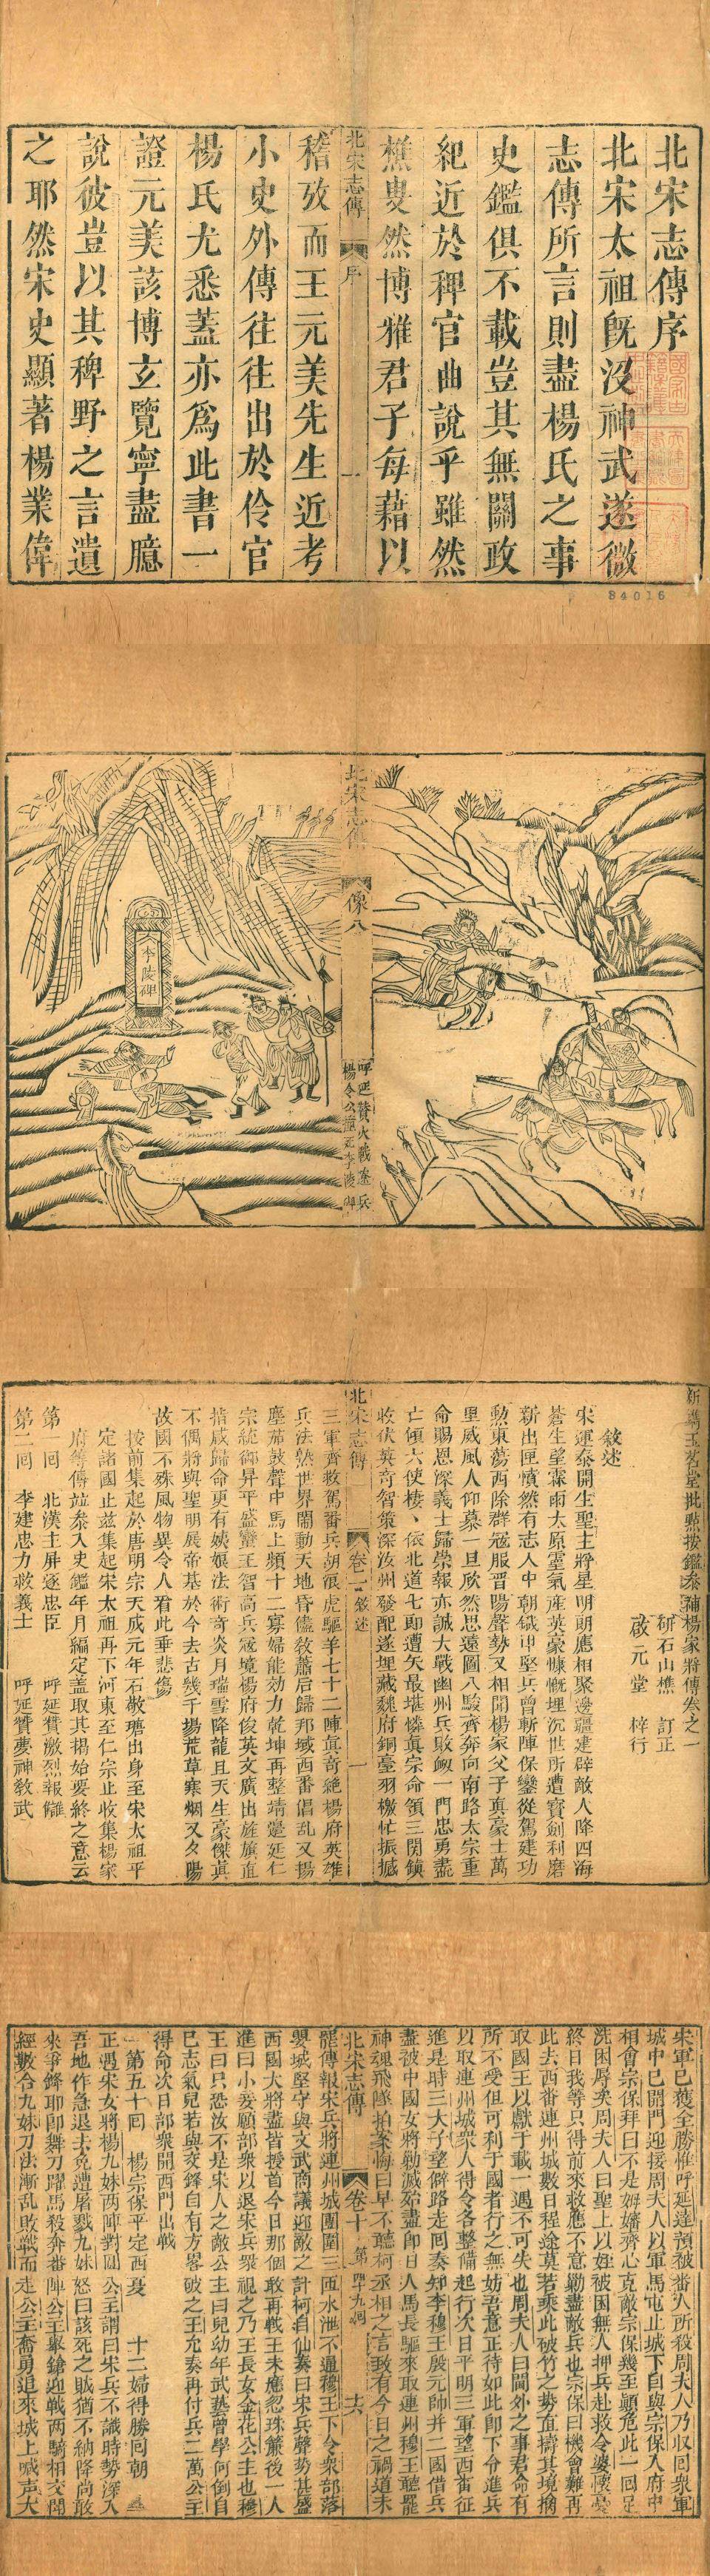 北宋志傳序
北宋太祖既沒神武遂微
志傳所言則盡楊氏之事
史鑑俱不載豈其無關政
紀近於稗官曲說乎雖然
樵叟然博雅君子每藉以
北宋志傳
序
一
稽攷而王元美先生近考
小史外傳往往出於伶官
楊氏尤悉蓋亦爲此書一
證元美該博玄覽寧盡臆
說彼豈以其稗野之言遺
之耶然宋史顯著楊業偉
84016
北宋志傳
像八
呼延贊大戰遼兵
楊令公撞死李陵碑
李陵碑
新鐫玉茗堂批點按鑑參補楊家將傳卷之一
研石山樵 訂正
啟元堂 梓行
敘述
宋運泰開生聖主將星明朗應相聚邊疆建辟敵人降四海
蒼生望霖雨太原靈氣産英豪慷慨埋沉世所遭寶劍利磨
新出匣憤然有志人中朝鐵甲堅兵曾斬陣保鑾從駕建功
勲東蕩西除群冦服晋陽聲勢又相聞楊家父子真豪士萬
里威風人仰慕一旦欣然思遠圖八駿齊奔向南路太宗重
命賜恩深義士歸榮報亦誠大戰幽州兵敗衂一門忠勇盡
亡傾六使棲棲依北道七郎遭矢最堪憐真宗命領三関鎮
收伏英奇智策深汝州發配遂埋藏魏府銅臺羽檄忙振撼
北宋志傳
卷一
敘述
一
三軍齊救駕番兵胡狠虎驅羊七十二陣真奇絶楊府英雄
兵法熟世界閙動天地昏儘教蕭后歸邦域西番倡乱又揚
塵茄鼓聲中馬上頻十二寡婦能効力乾坤再整靖邊廷仁
宗統御昇平盛蠻王智高兵冦境楊府俊英文廣出旌旗直
指咸歸命更有姨娘法術奇炎月瑞雪降龍且天生豪傑真
不偶將與聖明展帝基於今去古幾千塲荒草寒烟又夕陽
故國不殊風物異令人看此垂悲傷
按前集起於唐明宗天成元年石敬瑭出身至宋太祖平
定諸國止兹集起宋太祖再下河東至仁宗止收集楊家
府等傳竝參入史鑑年月編定蓋取其揭始要終之意云
第一回 北漢主屏逐忠臣 呼延贊激烈報讎
第二回 李建忠力救義士 呼延贊夢神教武
宋軍已獲全勝惟呼延達預被番人所殺周夫人乃収回衆軍
城中已開門迎接周夫人以軍馬屯止城下自與宗保入府中
相會宗保拜曰不是嬸嬸齊心克敵宗保幾至顛危此一回足
洗困辱矣周夫人曰聖上以姪被困無人押兵赴救令婆懷憂
終日我等只得前來救應不意勦盡敵兵也宗保曰機會難再
此去西番連州城數日程途莫若乘此破竹之勢直擣其境擒
取國王以獻于載一遇不可失也周夫人曰閫外之事君命有
所不受但可利于國者行之無妨吾意正待如此即下令進兵
以取連州城衆人得令各整備起行次日平明三軍望西番征
進是時三大子望僻路走囘奏知李穆王殷元帥并二國借兵
盡被中國女將勦滅殆盡即日人馬長驅來取連州穆王聽罷
神魂飛墜拍案悔曰早不聽柯丞相之言致有今日之禍道未
北宋志傳
卷十
第四十九囘
十六
罷傳報宋兵將連州城團圍三匝水泄不通穆王下令衆部落
嬰城堅守與文武商議迎敵之計柯自仙奏曰宋兵聲勢甚盛
西國大將盡皆授首今日那個敢再戰王未應忽珠簾後一人
進曰小妾願部衆以退宋兵衆視之乃王長女金花公主也穆
王曰只恐汝不是宋人之敵公主曰兒幼年武藝曾學何倒自
已志氣兒若與交鋒自有方畧破之王允奏再付兵二萬公主
得命次日部衆開西門出戰
第五十囘 楊宗保平定西夏 十二婦得勝囘朝
正遇宋女將楊九妹两陣對圓公主謂曰宋兵不識時勢深入
吾地作急退去免遭屠戮九妹怒曰該死之賊猶不納降尚敢
來爭鋒耶即舞刀躍馬殺奔番陣公主舉鎗迎戰两騎相交聞
經數合九妹刀法漸乱敗戰而走公主奮勇追來城上喊声大